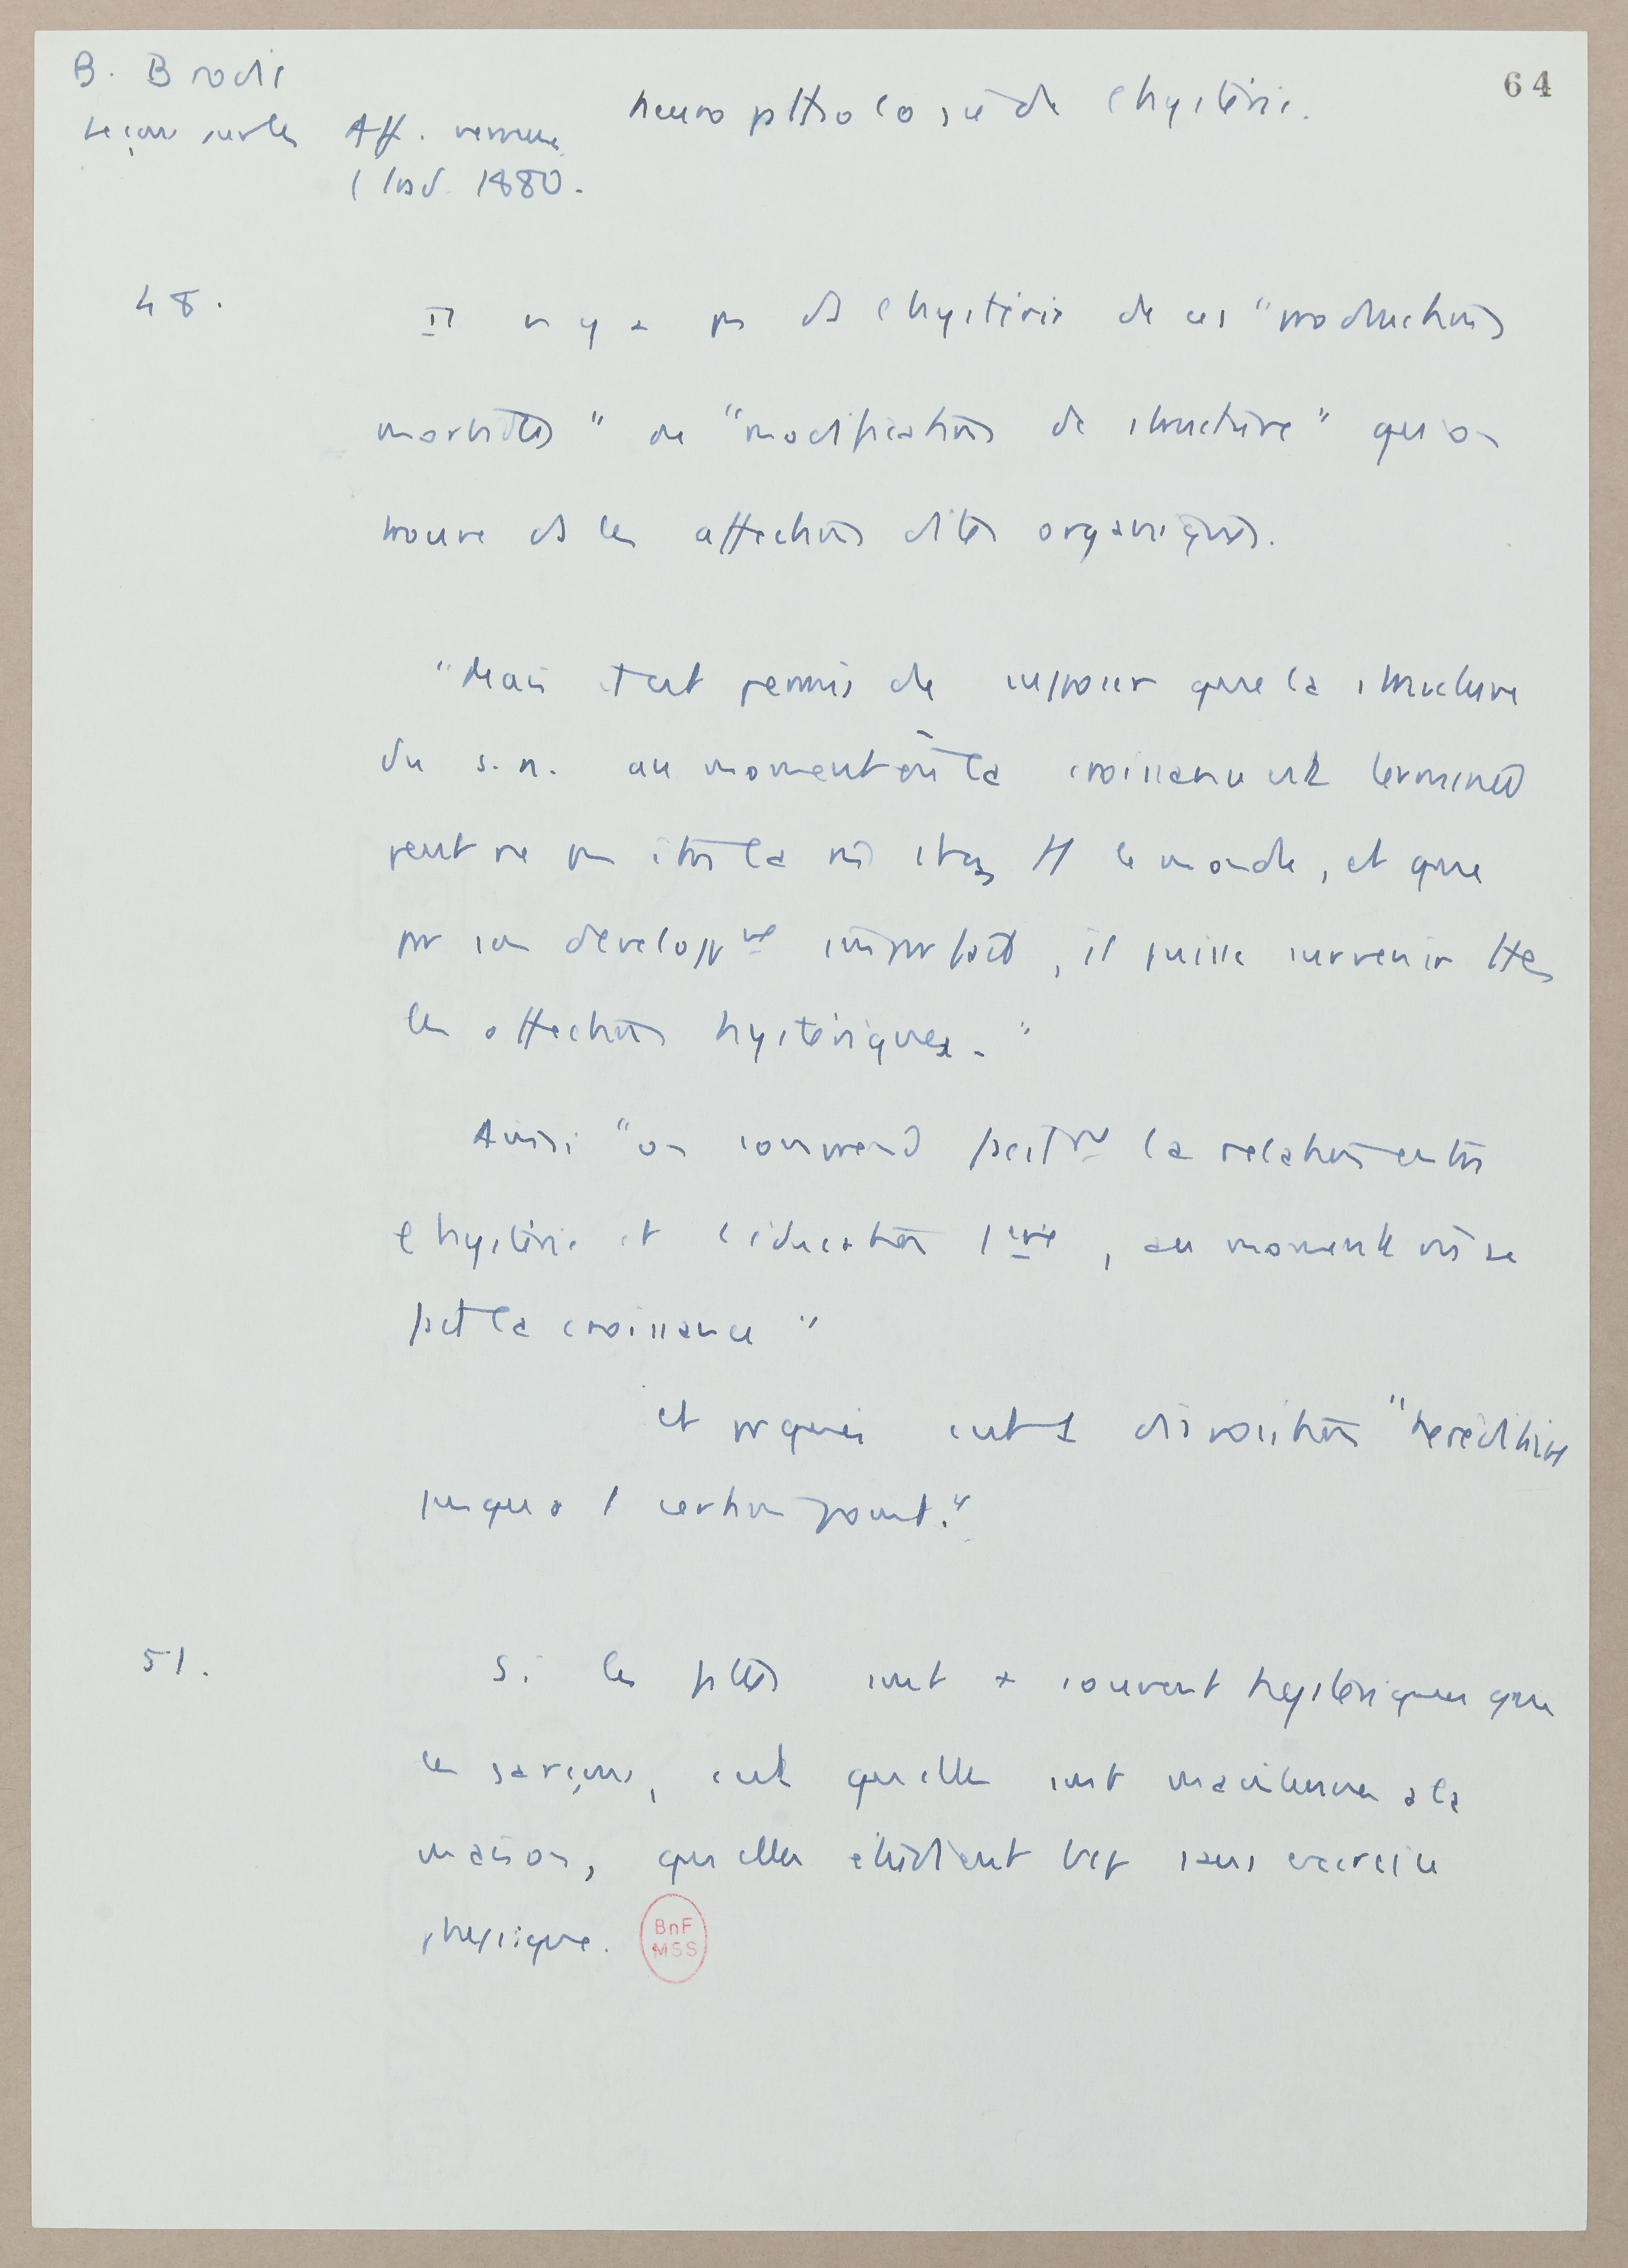 B. Brodie
Leçons sur les Aff. nerveuses
(trad. 1880.
neuropthologie de l'hystérie.
64
48.
Il n'y a pas ds l'hystérie de ces "productions
morbides" ou "modifications de structure" qu'on
trouve ds les affections dites organiques.
"Mais il est permis de supposer que la structure
du s. n. au moment où la croissance est terminée
peut ne pas être la m̂ chez tt le monde, et que
pr son développmt imparfait, il puisse survenir ttes
les affections hystériques."
Ainsi "on comprend parfaitmt la relation entre
l'hystérie et l'éducation 1ère, au moment où se
fait la croissance"
et pquoi c'est 1 disposition "héréditaire
jusqu'à 1 certain point."
51.
Si les filles sont + souvent hystériques que
les garçons, c'est qu'elles sont maintenues à la
maison, qu'elles étudient bcp sans exercice
physique.
BnF
MSS